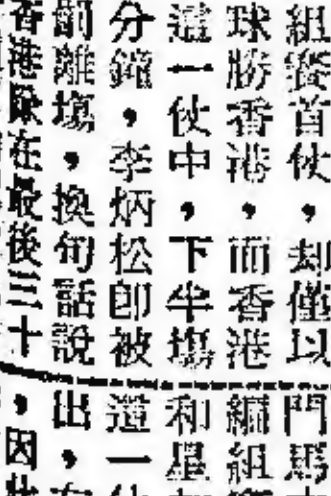 組賽首仗,却僅以
球勝香港,而香港
這一仗中,下半塲
分鐘,李炳松卽被
罰離塲,換句話說
香港隊在最後三十
門馬
編組
和星
這一
出,
,因此